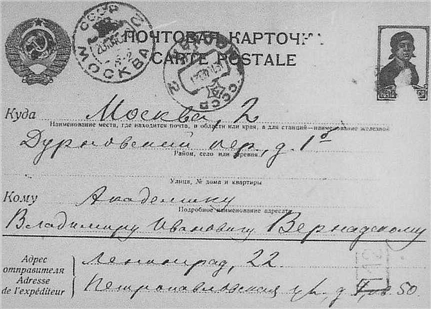 СССР
МОСКВА
ПОЧТОВАЯ КАРТОЧКА
CARTE POSTALE
СССР
Куда Москва, 2
Наименование места, где находится почта, и области или края, а для станций—наименование железной
Дурновский пер, д. 1б
Район, село или деревня
Улица, № дома и квартиры
Кому Академику
Подробное наименование адресата
Владимиру Ивановичу Вернадскому
Адрес отправителя
Adresse de l'expéditeur
Ленинград, 22.
Петропавловская ул. д. кв. 50.